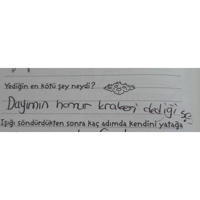 Yediğin en kötü şey neydi?
Dayımın hamur kraberi dediği şe
Işığı söndürdükten sonra kaç adımda kendini yatağa